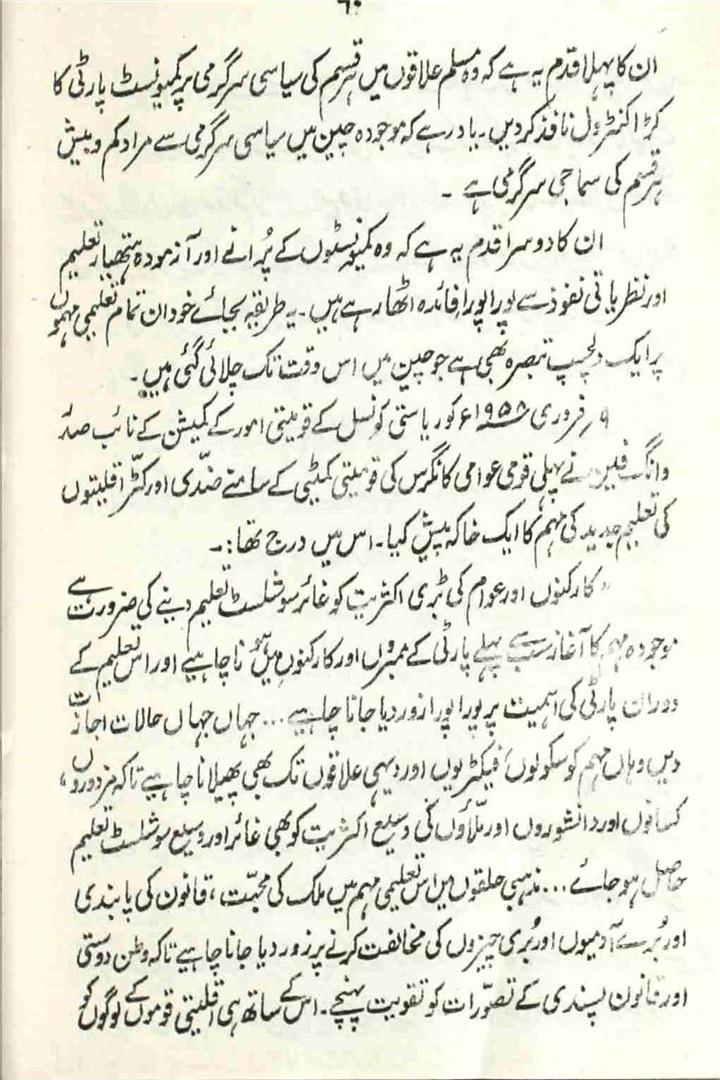 ۶۰
ان کا پہلا قدم یہ ہے کہ وہ مسلم علاقوں میں ہر قسم کی سیاسی سرگرمی پر کمیونسٹ پارٹی کا
کڑا کنٹرول نافذ کر دیں ۔ یاد رہے کہ موجودہ چین میں سیاسی سرگرمی سے مراد کم و بیش
ہر قسم کی سماجی سرگرمی ہے ۔
ان کا دوسرا قدم یہ ہے کہ وہ کمیونسٹوں کے پُرانے اور آزمودہ ہتھیار تعلیم
اور نظریاتی نفوذ سے پورا پورا فائدہ اٹھا رہے ہیں ۔ یہ طریقہ بجائے خود ان تمام تعلیمی مہموں
پر ایک دلچسپ تبصرہ بھی ہے جو چین میں اس وقت تک چلائی گئی ہیں ۔
۹ر فروری ۱۹۵۸ء کو ریاستی کونسل کے قومیتی امور کے کمیشن کے نائب صدر
وانگ فینگ نے پہلی قومی عوامی کانگرس کی قومیتی کمیٹی کے سامنے ضدّی اور کٹّر اقلیتوں
کی تعلیم جدید کی مہم کا ایک خاکہ پیش کیا ۔ اس میں درج تھا :۔
" کارکنوں اور عوام کی بڑی اکثریت کو غائر سوشلسٹ تعلیم دینے کی ضرورت ہے
موجودہ مہم کا آغاز سب سے پہلے پارٹی کے ممبروں اور کارکنوں میں ہونا چاہیے اور اس تعلیم کے
دوران پارٹی کی اہمیت پر پورا پورا زور دیا جانا چاہیے ... جہاں جہاں حالات اجازت
دیں وہاں مہم کو سکولوں، فیکٹریوں اور دیہی علاقوں تک بھی پھیلانا چاہیے تاکہ مزدوروں،
کسانوں اور دانشوروں اور ملّاؤں کی وسیع اکثریت کو بھی غائر اور وسیع سوشلسٹ تعلیم
حاصل ہو جائے ... مذہبی حلقوں میں اس تعلیمی مہم میں ملک کی محبّت ، قانون کی پابندی
اور بُرے آدمیوں اور بُری چیزوں کی مخالفت کرنے پر زور دیا جانا چاہیے تاکہ وطن دوستی
اور قانون پسندی کے تصوّرات کو تقویت پہنچے ۔ اس کے ساتھ ہی اقلیتی قوموں کے لوگوں کو